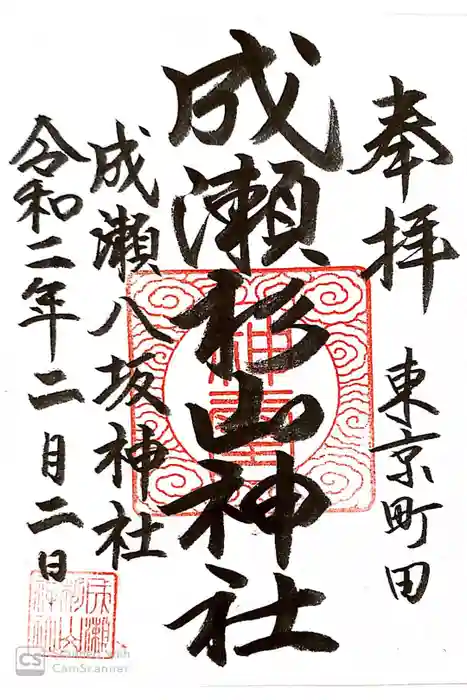 奉拝
東京町田
成瀬杉山神社
成瀬八坂神社
令和二年二月二日
CS
CamScanner